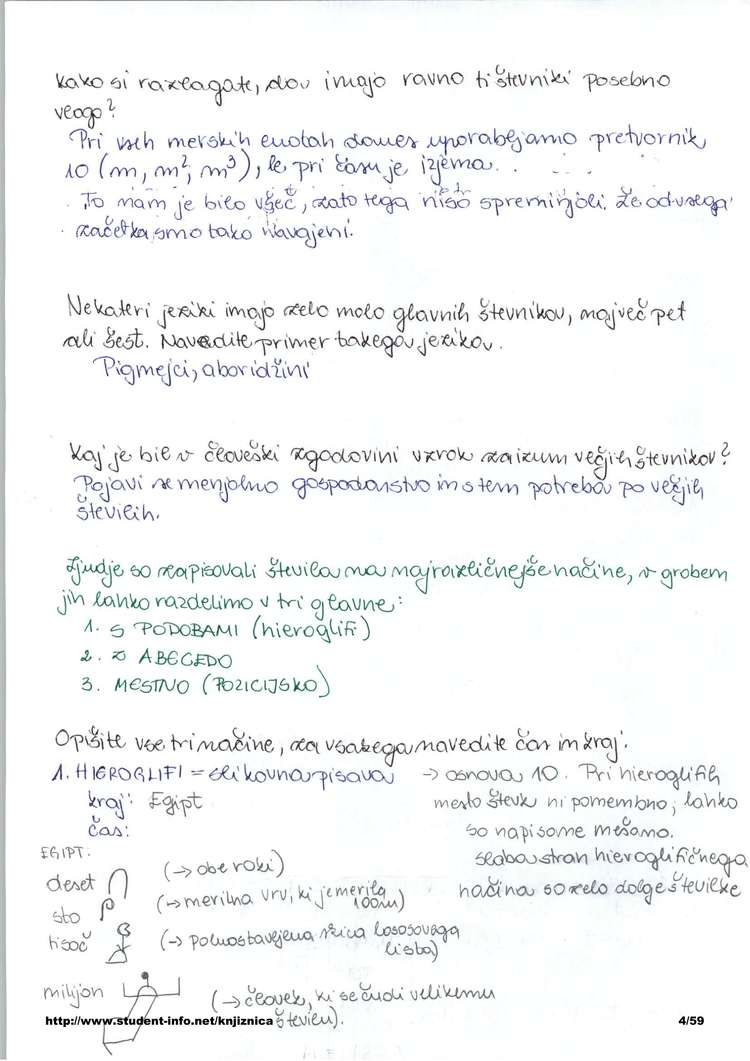 Kako si razlagate, da imajo ravno ti števniki posebno
vlogo?
Pri vseh merskih enotah danes uporabljamo pretvornik
10 (m, m², m³), le pri času je izjema.
To nam je bilo všeč, zato tega niso spreminjali. Že od vsega
začetka smo tako navajeni.
Nekateri jeziki imajo zelo malo glavnih števnikov, največ pet
ali šest. Navedite primer takega jezikov.
Pigmejci, aboridžini
Kaj je bil v človeški zgodovini vzrok za izum večjih števnikov?
Pojavi se menjalno gospodarstvo in s tem potreba po večjih
številih.
Ljudje so zapisovali števila na najrazličnejše načine, v grobem
jih lahko razdelimo v tri glavne:
1. S PODOBAMI (hieroglifi)
2. Z ABECEDO
3. MESTNO (POZICIJSKO)
Opišite vse tri načine, za vsakega navedite čas in kraj.
1. HIEROGLIFI = slikovna pisava → osnova 10. Pri hieroglifih
kraj: Egipt mesto števk ni pomembno; lahko
čas: so napisane mešano.
EGIPT: slaba stran hieroglifičnega
deset (→ obe roki) načina so zelo dolge številke
sto (→ merilna vrv, ki je merila
100m)
tisoč (→ polnostavljena lososovega
lista)
milijon (→ človek, ki se čudi velikemu
številu).
http://www.student-info.net/knjiznica 4/59